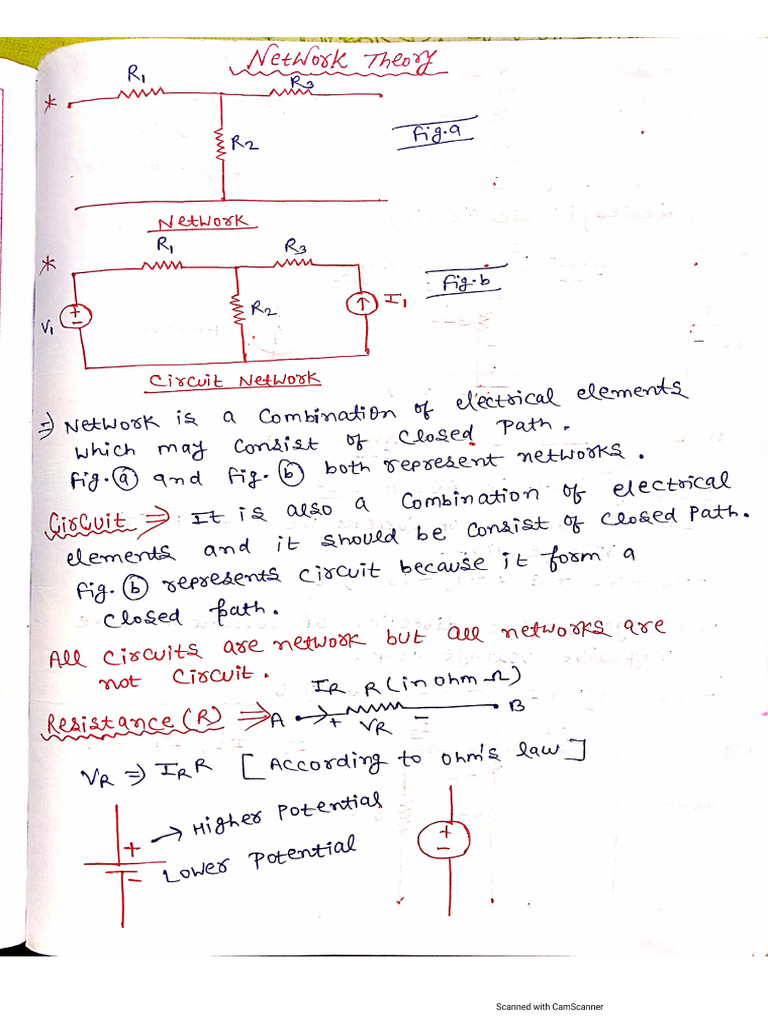 Network Theory
R1
R3
*
R2
Fig.a
Network
*
R1
R3
Fig.b
V1
+
−
R2
I1
Circuit Network
⇒ Network is a combination of electrical elements
which may consist of closed path.
fig.ⓐ and fig.ⓑ both represent networks.
Circuit ⇒ It is also a combination of electrical
elements and it should be consist of closed path.
fig.ⓑ represents circuit because it form a
closed path.
All circuits are network but all networks are
not circuit.
IR R(in ohm Ω)
Resistance (R) ⇒ A + VR − B
VR ⇒ IR R [According to ohm's law]
+ → Higher Potential
− Lower Potential
+
−
Scanned with CamScanner